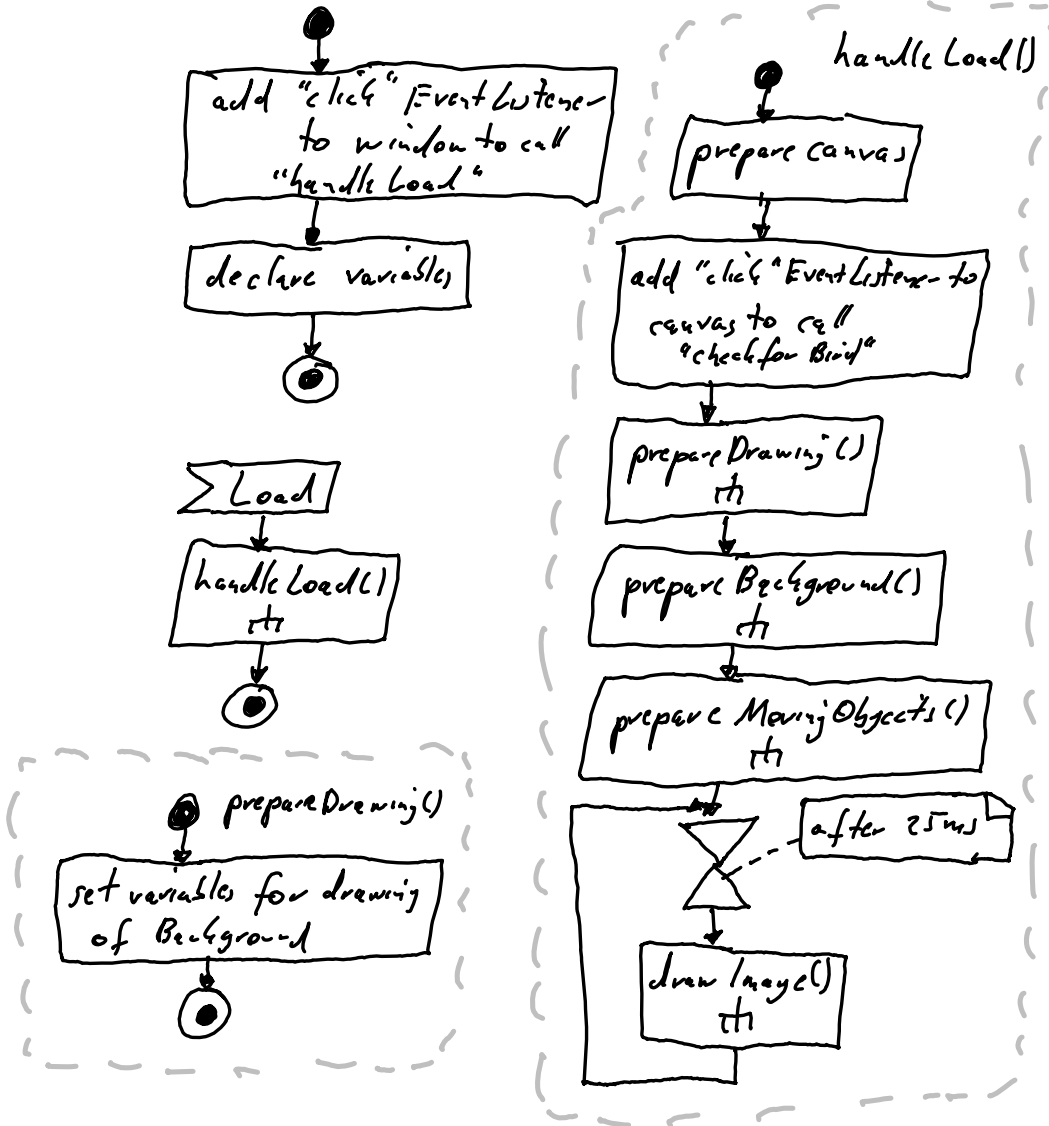 add "click" EventListener
to window to call
"handleLoad"
declare variables
Load
handleLoad()
prepareDrawing()
set variables for drawing
of Background
handleLoad()
prepare canvas
add "click" EventListener to
canvas to call
"checkforBird"
prepareDrawing()
prepareBackground()
prepareMovingObjects()
after 25ms
drawImage()